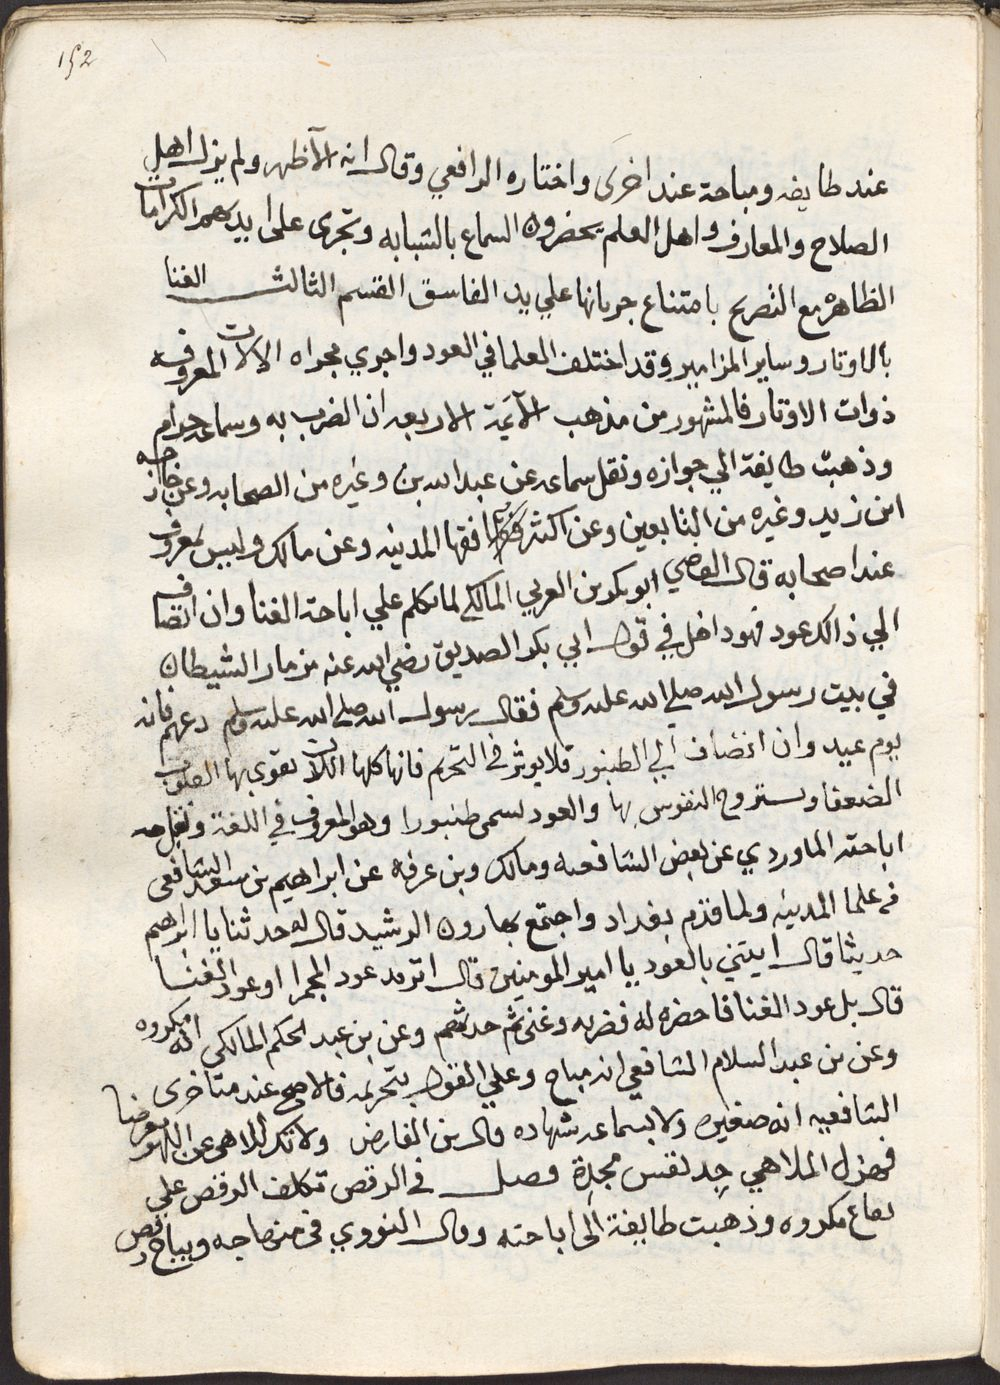 152
عند طايفه ومباحة عند اخرى واختاره الرافعي وقال انه الأظهر ولم يزل اهل
الصلاح والمعارف واهل العلم يحضرون السماع بالشبابه وتجرى على ايديهم الكرامات
الظاهره مع التصريح بامتناع جريانها علي يد الفاسق القسم الثالث الغنا
بالاوتار وساير المزامير وقد اختلف العلما في العود واجري مجراه الالات المعروفه
ذوات الاوتار فالمشهور من مذهب الأيمة الاربعه ان الضرب به وسماعه حرام
وذهبت طايفة الي جوازه ونقل سماعه عن عبد الله بن وغيره من الصحابه وعن خارجه
ابن زيد وغيره من التابعين وعن اكثر فقها المدينه وعن مالك وليس بمعروف
عند اصحابه قال القاضي ابو بكر بن العربي المالكي لما تكلم علي اباحة الغنا وان انضاف
الي ذالك عود فهو داخل في قول ابي بكر الصديق رضي الله عنه مزمار الشيطان
في بيت رسول الله صلي الله عليه وسلم فقال رسول الله صلي الله عليه وسلم دعهم فانه
يوم عيد وان انضاف الي الطنبور فلا يوثر في التحريم فانها كلها الات تقوى بها القلوب
الضعفا وتستروح النفوس بها والعود يسمى طنبورا وهو المعروف في اللغة ونقل
اباحته الماوردي عن بعض الشافعيه ومالك وبن عرفه عن ابراهيم بن سعد الشافعي
في علما المدينه ولما قدم بغداد واجتمع بهارون الرشيد قال له حدثنا يا ابراهيم
حديثا قال ايتني بالعود يا امير المومنين قال اتريد عود المجمرا او عود الغنا
قال بل عود الغنا فاحضره له فضربه وغنى ثم حدثهم وعن بن عبد الحكم المالكي انه مكروه
وعن بن عبد السلام الشافعي انه مباح وعلي القول بتحريمه فالاصح عند متاخرى
الشافعيه انه صغيره ولا بسماعه شهاده قال بن الفارض ولا تك باللاهي عن اللهو معرضا
فهزل الملاهي جد نفس مجدة فصل في الرقص تكلف الرقص علي
ايقاع مكروه وذهبت طايفة الى اباحته وقال النووي في منهاجه ويباح رقص